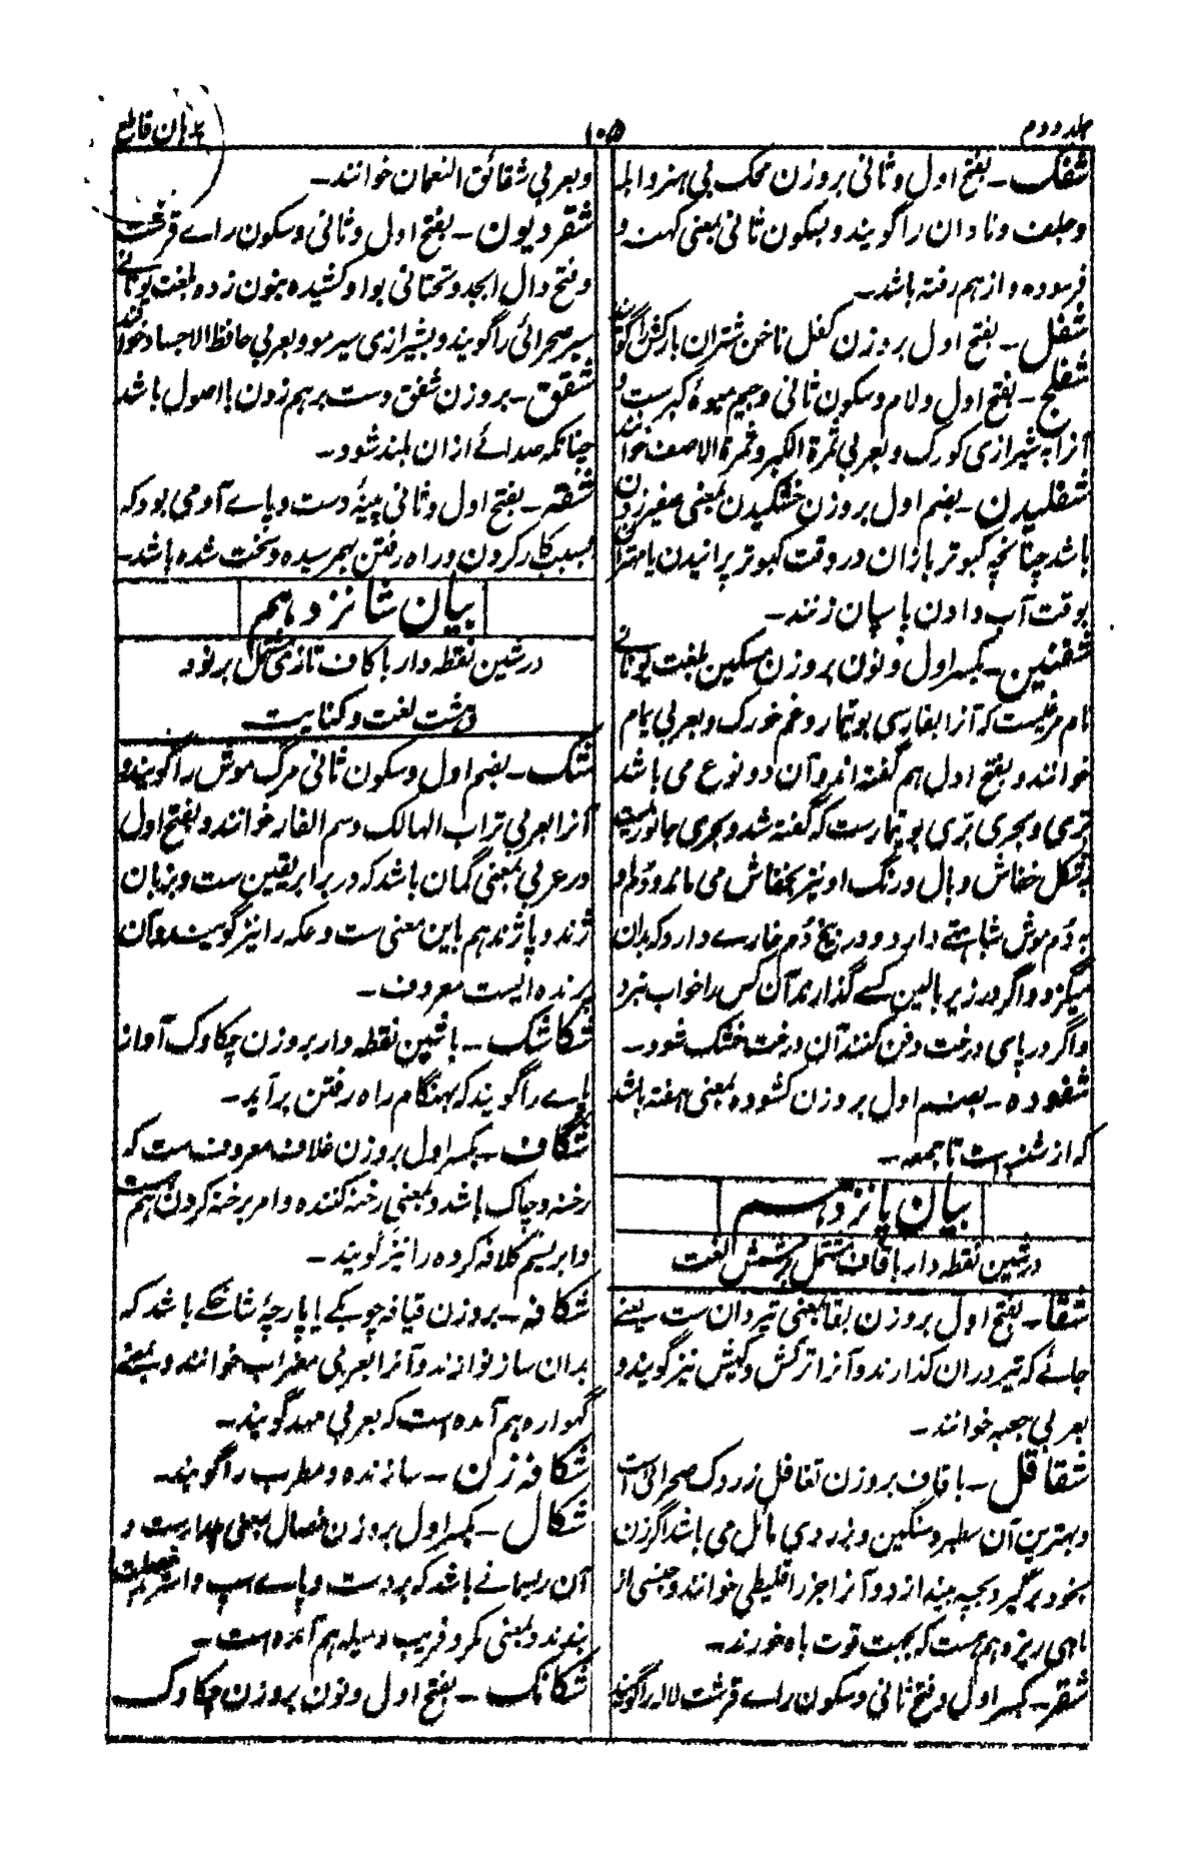 جلد دوم
۱۰۵
برهان قاطع
شفک ـ بفتح اول و ثانی بر وزن محک بی هنر و ابله
و جلف و نادان را گویند و بسکون ثانی بمعنی کهنه و
فرسوده و از هم رفته باشد ـ
شفل ـ بفتح اول بر وزن کفل ناخن شتران بارکش را گویند
شفلج ـ بفتح اول و لام و سکون ثانی و جیم میوهٔ کبرست و
آنرا به شیرازی کورک و بعربی ثمرة الکبر و ثمرة الاصف خوانند
شفلیدن ـ بضم اول بر وزن خشکیدن بمعنی صفیر زدن
باشد چنانچه کبوتر بازان در وقت کبوتر پرانیدن یا مهتران
بوقت آب دادن باسپان زنند ـ
شفنین ـ بکسر اول و نون بر وزن مسکین بلغت یونانے
نام مرغیست که آنرا بفارسی بوتیمار و غم خورک و بعربی یمام
خوانند و بفتح اول هم گفته اند و آن دو نوع می باشد
بری و بحری بری بوتیمارست که گفته شد و بحری جانوریست
بشکل خفاش و بال و رنگ او نیز بخفاش می ماند و دُم او
به دُم موش شباهتے دارد و در بیخ دُم خارے دارد که بدان
میگزد و اگر در زیر بالین کسے گذارند آن کس را خواب نبرد
و اگر در پای درخت دفن کنند آن درخت خشک شود ـ
شفوده ـ بضم اول بر وزن کشوده بمعنی هفته باشد
که از شنبه است تا جمعه ـ
بیان پانزدهم
در شین نقطه دار با قاف مشتمل بر شش لغت
شقا ـ بفتح اول بر وزن بقا بمعنی تیردان ست یعنے
جائے که تیر در آن گذارند و آنرا ترکش و کیش نیز گویند و
بعربی جعبه خوانند ـ
شقاقل ـ با قاف بر وزن تغافل زردک صحرائی است
و بهترین آن سطبر و سنگین و بزردی مائل می باشد اگر زن
بخود برگیرد بچه بیندازد و آنرا جزر اقلیطی خوانند و جنسی از
ماهی ریزه هم هست که بجهت قوت باه خورند ـ
شقر ـ بکسر اول و فتح ثانی و سکون راے قرشت لاله را گویند
و بعربی شقائق النعمان خوانند ـ
شقر دیون ـ بفتح اول و ثانی و سکون راے قرشت
و فتح دال ابجد و تحتانی بواو کشیده بنون زده بلغت یونانے
سیر صحرائی را گویند و بشیرازی سیر مو و بعربی حافظ الاجساد خوانند
شقق ـ بر وزن شفق دست برهم زدن با اصول باشد
چنانکه صدائے از آن بلند شود ـ
شقه ـ بفتح اول و ثانی پینهٔ دست و پاے آدمی بود که
بسبب کار کردن و راه رفتن بهم رسیده و سخت شده باشد ـ
بیان شانزدهم
در شین نقطه دار با کاف تازی مشتمل بر نود
و هشت لغت و کنایت
شک ـ بضم اول و سکون ثانی مرگ موش را گویند و
آنرا بعربی تراب الهالک و سم الفار خوانند و بفتح اول
در عربی بمعنی گمان باشد که در برابر یقین ست و بزبان
ژند و پاژند هم باین معنی ست و عکه را نیز گویند و آن
پرنده ایست معروف ـ
شکاشک ـ با شین نقطه دار بر وزن چکاوک آواز
پاے را گویند که بهنگام راه رفتن برآید ـ
شکاف ـ بکسر اول بر وزن غلاف معروف ست که
رخنه و چاک باشد و بمعنی رخنه کننده و امر بر رخنه کردن هم هست
و ابریشم کلافه کرده را نیز گویند ـ
شکافه ـ بر وزن قیافه چوبکے یا پارچهٔ شاخکے باشد که
بدان ساز نوازند و آنرا بعربی مضراب خوانند و بمعنے
گهواره هم آمده است که بعربی مهد گویند ـ
شکافه زن ـ سازنده و مطرب را گویند ـ
شکال ـ بکسر اول بر وزن خصال بمعنی مدارست و
آن ریسمانے باشد که بر دست و پاے اسپ و استر
بندند و بمعنی مکر و فریب و حیله هم آمده است ـ
شکانک ـ بفتح اول و نون بر وزن چکاوک